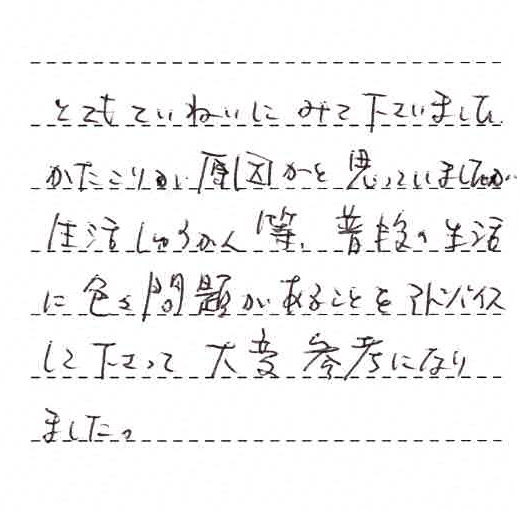 とてもていねいにみて下さいました。
かたこりが原因かと思っていましたが
生活しゅうかん等、普段の生活
に色々問題があることをアドバイス
して下さって大変参考になり
ました。